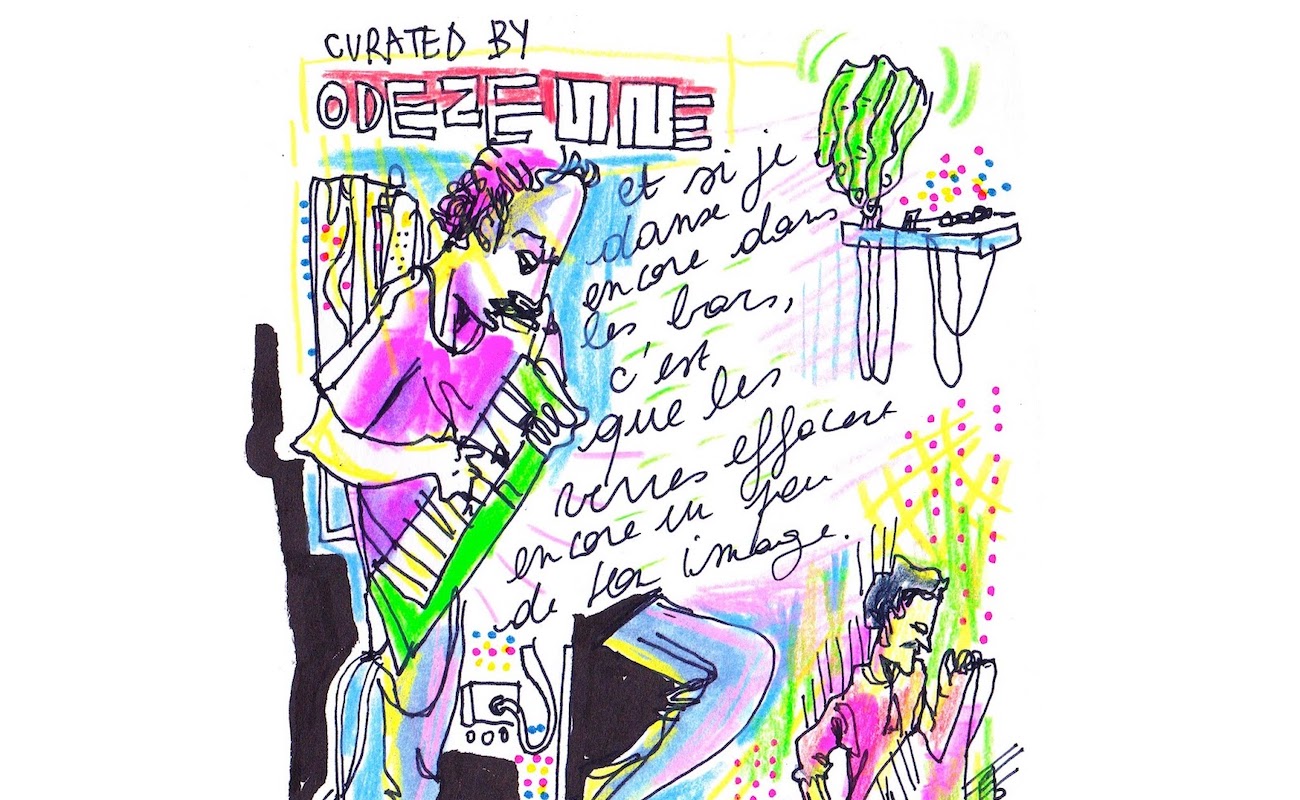 CURATED BY
ODEZENNE
et si je
danse
encore dans
les bars,
c'est
que les
verres effacent
encore un peu
de ton image.